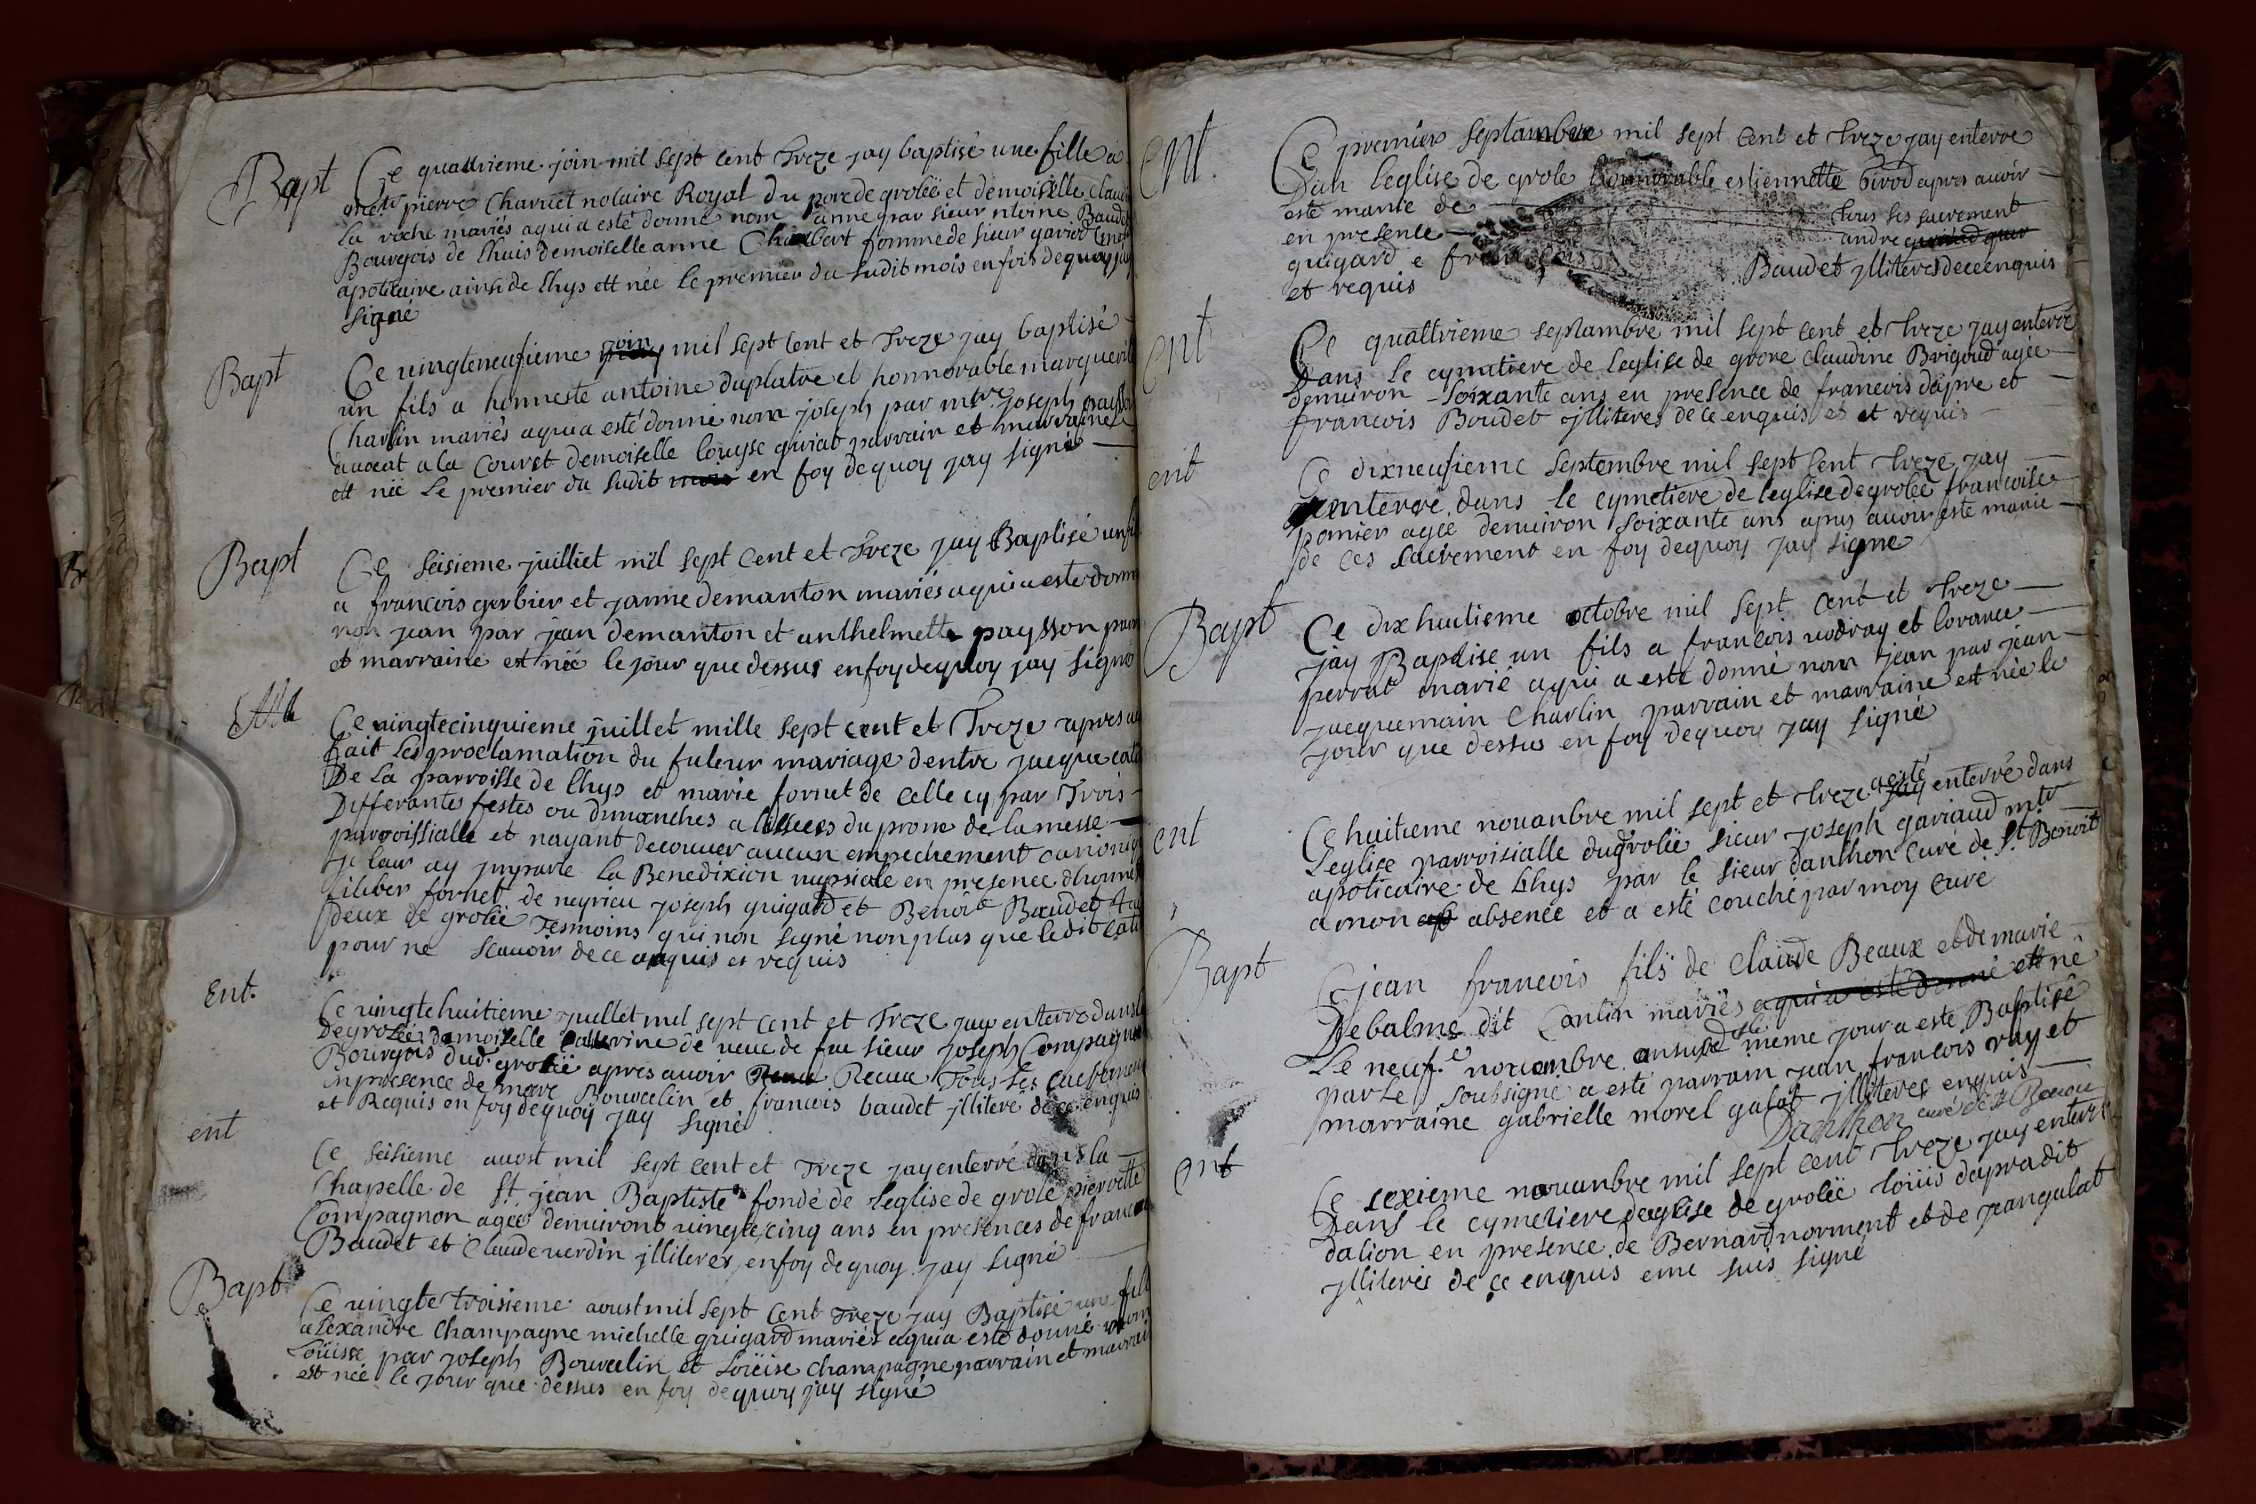 Bapt
Ce quattrieme join mil sept cent treze jay baptisé une fille a
me pierre Charuet notaire Royal du por de grolëe et demoiselle Clau
La roche mariés a qui a esté donné nom anne par sieur ntoine Baude
Bourgois de lhuis demoiselle anne Chambert fomme de sieur gariod
apoticaire ainsi de lhys ett née le premier du sudit mois en fois de quoy jay
signé
Bapt
Ce uingteneufieme join mil sept cent et treze jay baptisé
un fils a honneste antoine duplatre et honnorable marguerit
Charlin mariés a qui a esté donné nom joseph par mtre joseph paysson
auocat a la Court demoiselle louyse guriat parrain et marraine
ett née le premier du sudit mois en foy de quoy jay signé
Bapt
Ce seisieme juilliet mil sept cent et treze jay Baptisé un fil
a francois gerbier et janne demanton mariés a qui a esté donn
non jean par jean demanton et anthelmette paysson parr
et marraine est née le jour que dessus en foy de quoy jay signé
Ce uingtecinquieme juillet mille sept cent et treze apres au
fait les proclamation du futeur mariage dentre jacque
De la parroisse de lhys et marie fornet de celle cy par trois
Differantes festes ou dimanches a lissues du prone de la messe
parroissialle et nayant decouuer aucun empechement canoniq
je laur ay imparte la Benedixion nupsiale en presence dhonne
fornet de neyrieu joseph guigard et Benoit Baudet
deux de grolëe tesmoins qui non signé non plus que ledit
pour ne scauoir de ce enquis et requis
Ent.
Ce uingtehuitieme juillet mil sept cent et treze jay enterre dans l
De grolëe demoiselle Catterine de ueue de feu sieur joseph Compagnon
Bourgois dud. grolëe apres auoir Receue Tous les sacremen
en presence de marc Bourcelin et francois baudet jllitere de ce enquis
et Requis en foy de quoy jay signé
ent
Ce seisieme auost mil sept cent et treze jay enterré dans la
Chapelle de St. jean Baptiste fondé de leglise de grolë pierrette
Compagnon agée denuiront uingtecinq ans en presences de francois
Baudet et Claude uerdin jlliteres en foy de quoy jay signé
Bapt
Ce uingte troisieme aoust mil sept cent treze jay Baptisé une fille
a lexandre Champagne michelle guigard mariés a qui a esté donné nom
Loüisse par joseph Bourcelin et Loüise Champagne parrain et marrain
est née le jour que dessus en foy de quoy jay signé
ent.
Ce premier septambre mil sept cent et treze jay enterre
Dan leglise de grole honnorable estiennette Girod apres auoir
esté manie de tous ses sacrement
en presence andre
guigard e francois Baudet jlliteres de ce enquis
et requis
ent
Ce quattrieme septambre mil sept cent et treze jay enterré
Dans le cymetiere de leglise de grore Claudine Brigoud agée
denuiron soixante ans en presence de francois dapre et
francois Boudet jlliteres de ce enquis es et requis
ent
Ce dixneufieme septembre mil sept cent treze jay
enterré dans le cymetiere de leglise de grolée francoise
pomier agée denuiron soixante ans apres auoir esté manie
de ces sacrement en foy dequoy jay signe
Bapt
Ce dixhuitieme octobre mil sept cent et treze
jay Baptise un fils a francois uodray et lorance
perrat marié a qui a esté donné nom jean par jean
jacquemain Charlin parrain et marraine est née le
jour que dessus en foy dequoy jay signé
ent
Ce huitieme nouanbre mil sept et treze a esté jay enterré dans
Leglise parroisialle dugrolëe sieur joseph gariaud mtr
apoticaire de Lhys par le sieur danthon curé de St Benoit
a mon absence et a esté couché par moy curé
Bapt
Ce jean francois fils de Claude Beaux et de marie
Debalme dit Conlin mariés a qui a esté donné ett né
Le neuf.e nouembre ansuitte le même jour a esté Baptisé
par Le soubsigné a esté parrain jean francois ray et
marraine gabrielle morel galat jlliteres enquis
Danthon curé de St Benoit
ent
Ce sexieme nouanbre mil sept cent treze jay enterre
Dans le cymetiere deglise de grolëe loüis dapra dit
dalion en presence de Bernard norment et de jeangalat
jlliterés de ce enquis eme suis signé